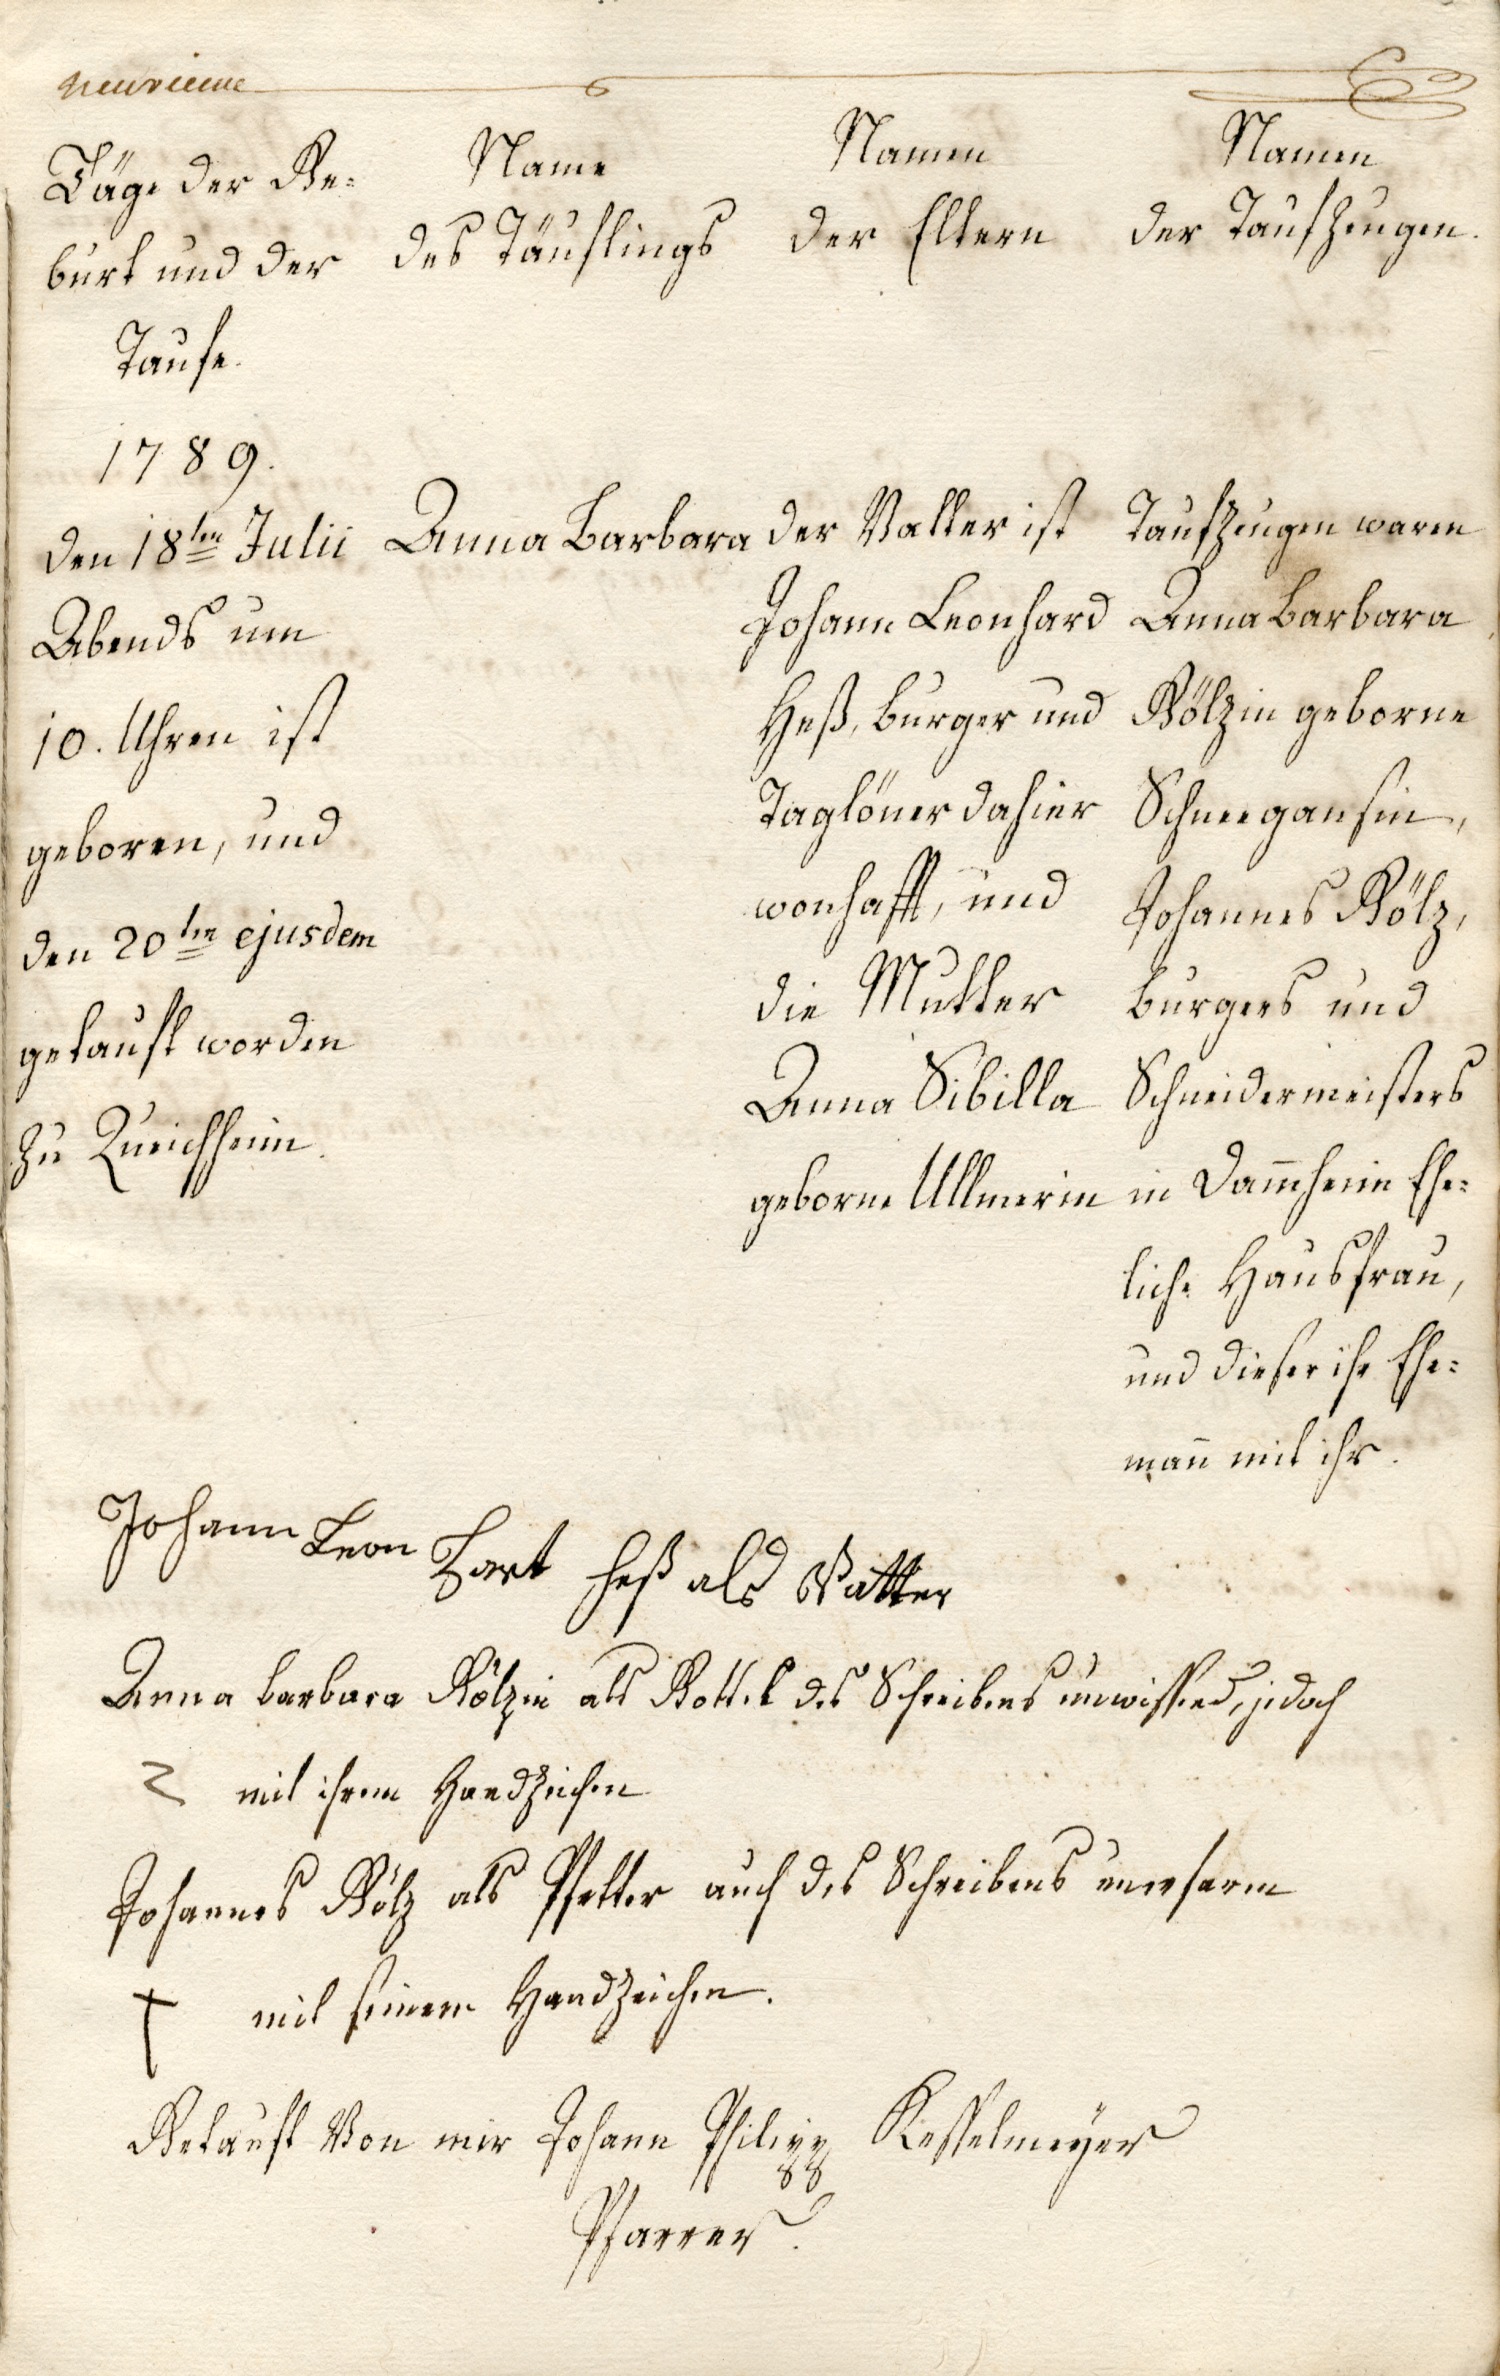 neuvieme
Täge der Ge-
burt und der
Taufe.
1789.
den 18ten Julii
Abends um
10. Uhren ist
geboren, und
den 20ten ejusdem
getauft worden
zu Queichheim.
Name
des Täuflings
Anna Barbara
Namen
der Eltern
der Vatter ist
Johann Leonhard
Heß, burger und
Taglöner dahier
wonhafft, und
die Mutter
Anna Sibilla
geborne Ullmerin
Namen
der Taufzeugen.
Taufzeugen waren
Anna Barbara
Völzin geborne
Schneegansin,
Johannes Völz,
burgers und
Schneidermeisters
in Dam̅heim Ehe-
liche Hausfrau,
und dieser ihr Ehe-
man̅ mit ihr.
Johann Leon Hart heß als Vatter
Anna barbara Völzin als Gottel des Schreibens unwissend, jedoch
mit ihrem Handzeichen
Johannes Völz als Pfetter auch des Schreibens unerfarn
† mit seinem Handzeichen.
Getauft Von mir Johann Philipp Kesselmeyer
Pfarrer.